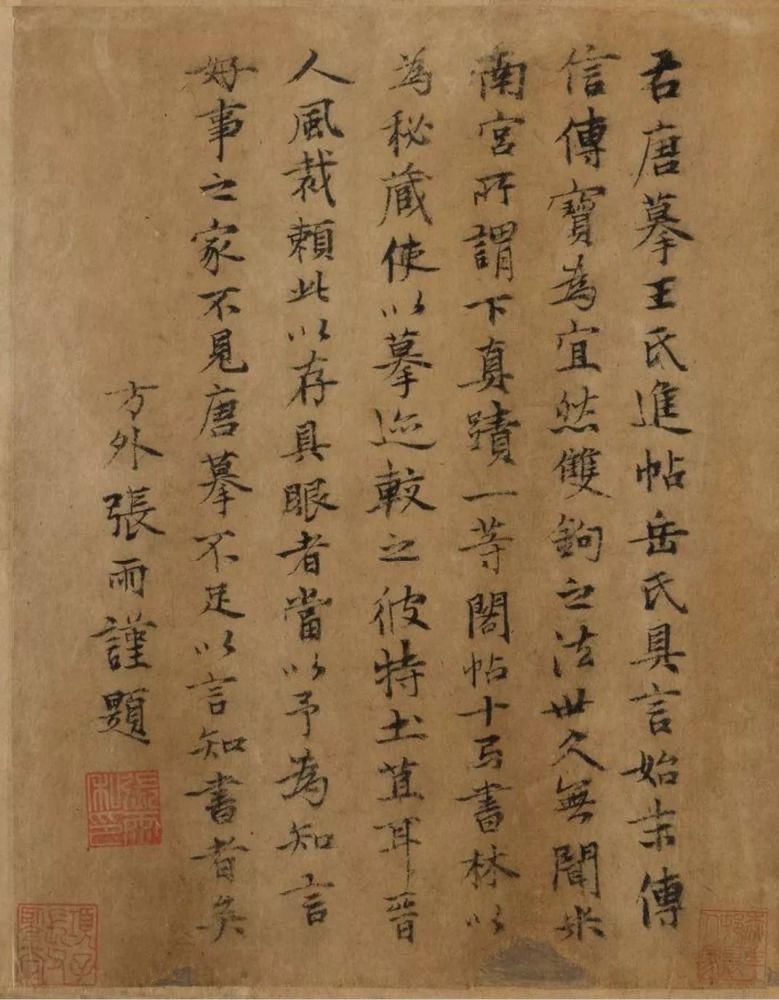 右唐摹王氏進帖岳氏具言始末傳
信傳寶為宜然雙鉤之法世久無聞米
南宮所謂下真蹟一等閣帖十弓書林以
為秘藏使以摹迹較之彼特土苴耳晉
人風裁賴此以存具眼者當以予為知言
好事之家不見唐摹不足以言知書者矣
方外張雨謹題
張雨私印
項子長父鑒定